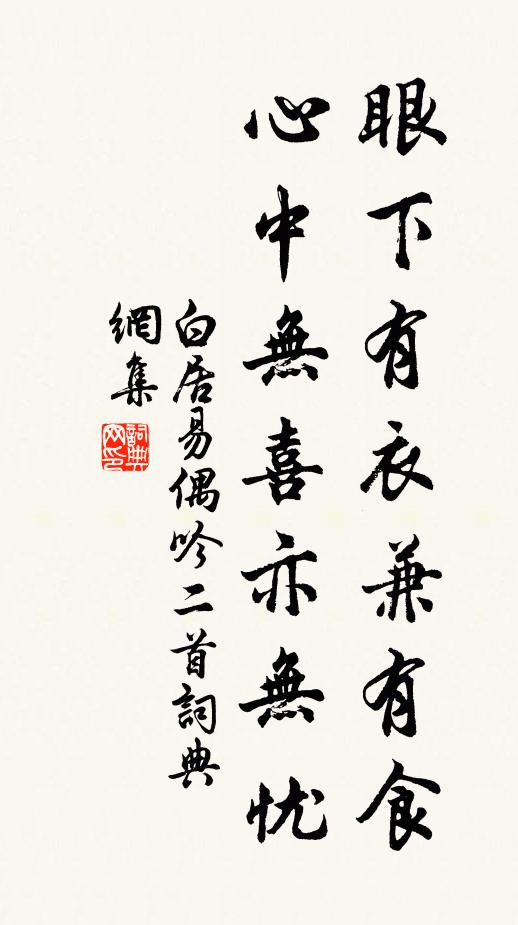 眼下有衣兼有食
心中無喜亦無忧
白居易偶吟二首詞典
網集
詞典
网印